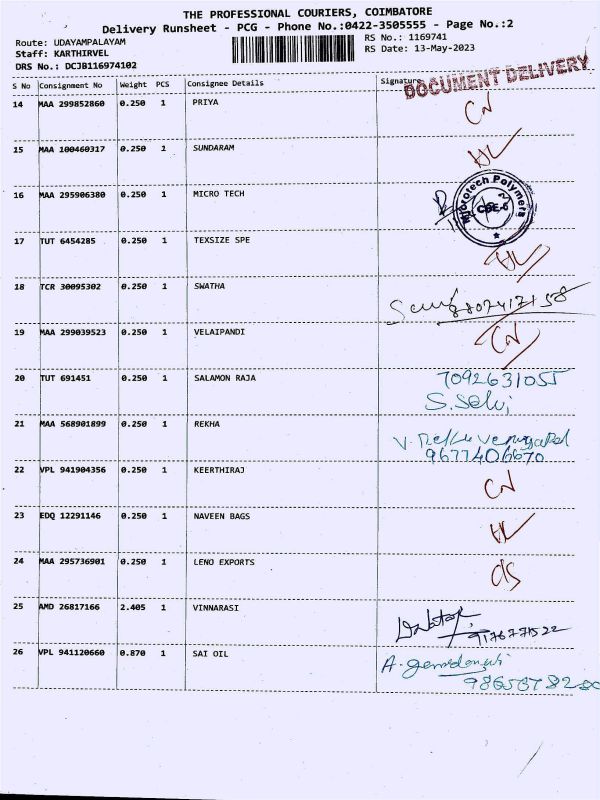 THE PROFESSIONAL COURIERS, COIMBATORE
Delivery Runsheet - PCG - Phone No.:0422-3505555 - Page No.:2
Route: UDAYAMPALAYAM
RS No.: 1169741
Staff: KARTHIRVEL
RS Date: 13-May-2023
DRS No.: DCJB116974102
S No Consignment No Weight PCS Consignee Details Signature
DOCUMENT DELIVERY
14 MAA 299852860 0.250 1 PRIYA CN
15 MAA 100460317 0.250 1 SUNDARAM
16 MAA 295906380 0.250 1 MICRO TECH
Microtech Polymers
CBE-6
17 TUT 6454285 0.250 1 TEXSIZE SPE
18 TCR 30095302 0.250 1 SWATHA
8807417158
19 MAA 299039523 0.250 1 VELAIPANDI CN
20 TUT 691451 0.250 1 SALAMON RAJA 7092631055
S.Selvi
21 MAA 568901899 0.250 1 REKHA
9677406670
22 VPL 941904356 0.250 1 KEERTHIRAJ CN
23 EDQ 12291146 0.250 1 NAVEEN BAGS
24 MAA 295736901 0.250 1 LENO EXPORTS
25 AMD 26817166 2.405 1 VINNARASI
9176771522
26 VPL 941120660 0.870 1 SAI OIL